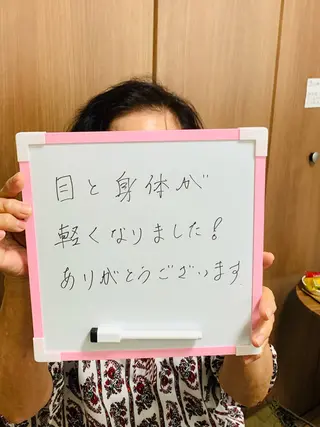 目と身体が
軽くなりました!
ありがとうございます